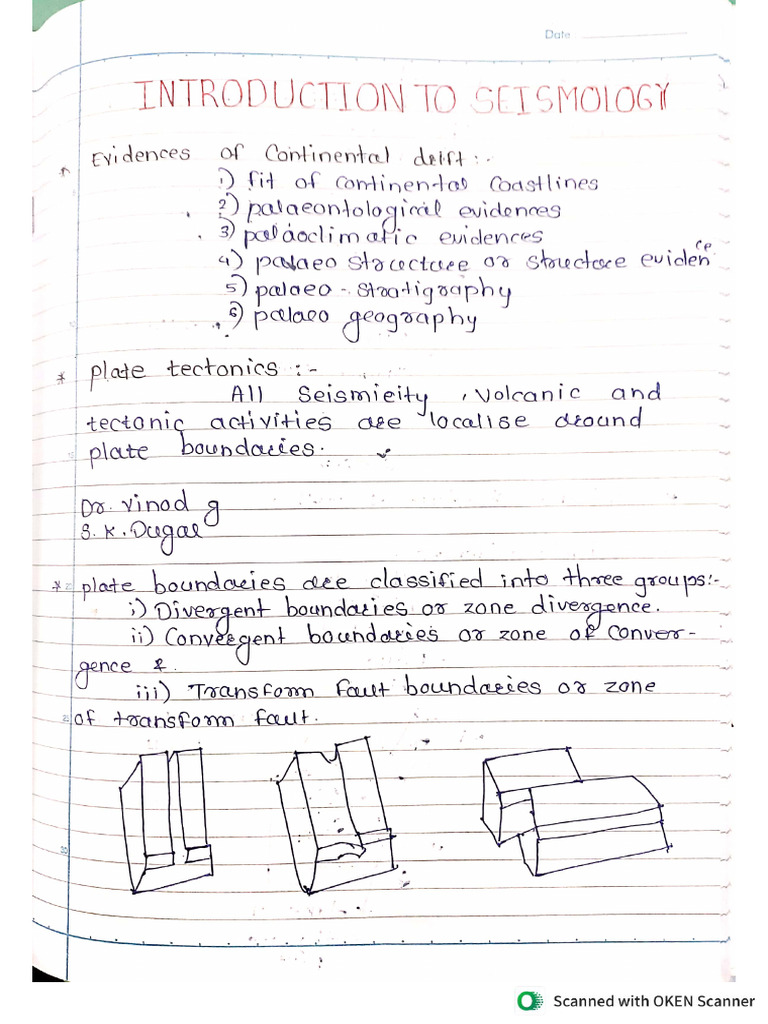 Date
INTRODUCTION TO SEISMOLOGY
* Evidences of Continental drift :-
1) fit of continental Coastlines
2) palaeontological evidences
3) palaoclimatic evidences
4) palaeo structure or structure evidence
5) palaeo - stratigraphy
6) palaeo geography
* plate tectonics :-
All Seismicity , Volcanic and
tectonic activities are localise around
plate boundaries.
Dr. Vinod g
S. K. Dugal
* plate boundaries are classified into three groups:-
i) Divergent boundaries or zone divergence.
ii) Convergent boundaries or zone of conver-
gence &.
iii) Transform fault boundaries or zone
of transform fault.
Scanned with OKEN Scanner